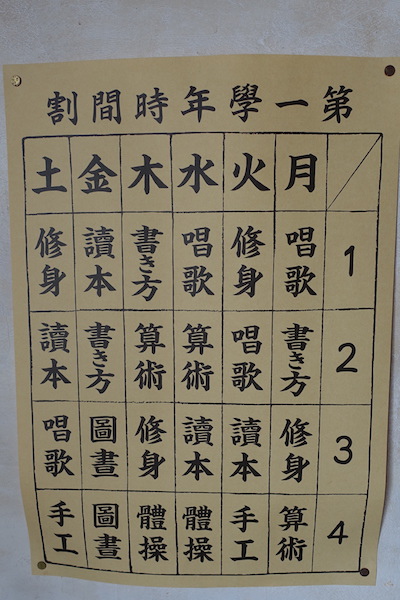 第一學年時間割
月 火 水 木 金 土
1 唱歌 修身 唱歌 書き方 讀本 修身
2 書き方 唱歌 算術 算術 書き方 讀本
3 修身 讀本 讀本 修身 圖畫 唱歌
4 算術 手工 體操 體操 圖畫 手工